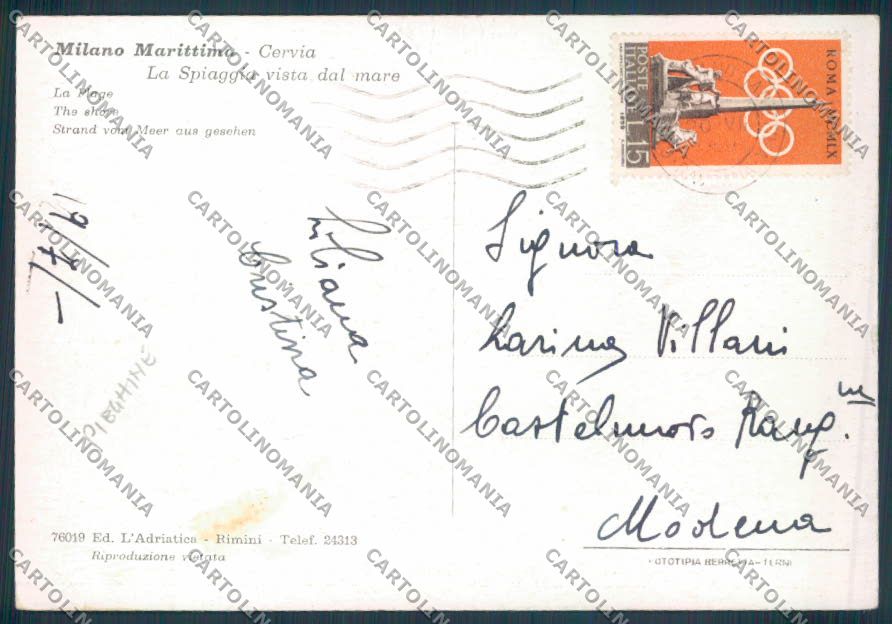 Milano Marittima - Cervia
La Spiaggia vista dal mare
La Plage
The shore
Strand vom Meer aus gesehen
POSTE ITALIANE
1959
L. 15
ROMA MCMLX
19/7/-
Liliana
Cristina
PIEGHINE
Signora
Villani
Castelnuovo Rang.
Modena
76019 Ed. L'Adriatica - Rimini - Telef. 24313
Riproduzione vietata
CARTOLINOMANIA